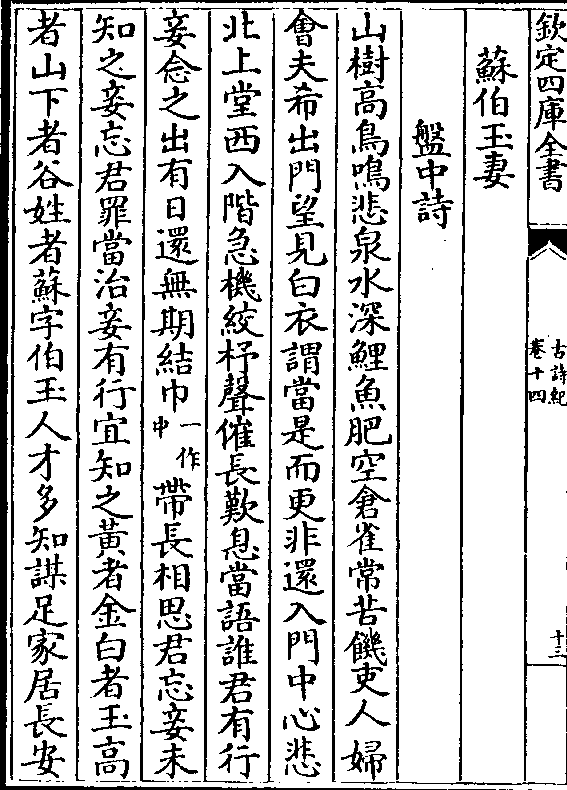 欽定四庫全書
古詩紀
卷十四
十三
蘇伯玉妻
盤中詩
山樹高鳥鳴悲泉水深鯉魚肥空倉雀常苦饑吏人婦
會夫希出門望見白衣謂當是而更非還入門中心悲
北上堂西入階急機絞杼聲催長歎息當語誰君有行
妾念之出有日還無期結巾一作中帶長相思君忘妾未
知之妾忘君罪當治妾有行宜知之黃者金白者玉高
者山下者谷姓者蘇字伯玉人才多知謀足家居長安